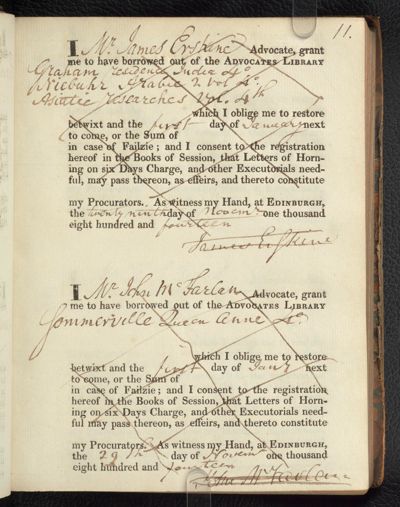 11.
I Mr. James Erskine Advocate, grant
me to have borrowed out of the ADVOCATES LIBRARY
Graham residence India 4o
Niebuhr Arabie 2 vol 4o
Asiatic researches Vol. 4th
which I oblige me to restore
betwixt and the first day of January next
to come, or the Sum of
in case of Failzie; and I consent to the registration
hereof in the Books of Session, that Letters of Horn-
ing on six Days Charge, and other Executorials need-
ful, may pass thereon, as effeirs, and thereto constitute
my Procurators. As witness my Hand, at EDINBURGH,
the twenty ninth day of Novemr. one thousand
eight hundred and fourteen
James Erskine
I Mr. John McFarlan Advocate, grant
me to have borrowed out of the ADVOCATES LIBRARY
Sommerville Queen Anne 4o.
which I oblige me to restore
betwixt and the first day of Jany next
to come, or the Sum of
in case of Failzie; and I consent to the registration
hereof in the Books of Session, that Letters of Horn-
ing on six Days Charge, and other Executorials need-
ful may pass thereon, as effeirs, and thereto constitute
my Procurators. As witness my Hand, at EDINBURGH,
the 29th day of Novemr one thousand
eight hundred and fourteen
John McFarlan